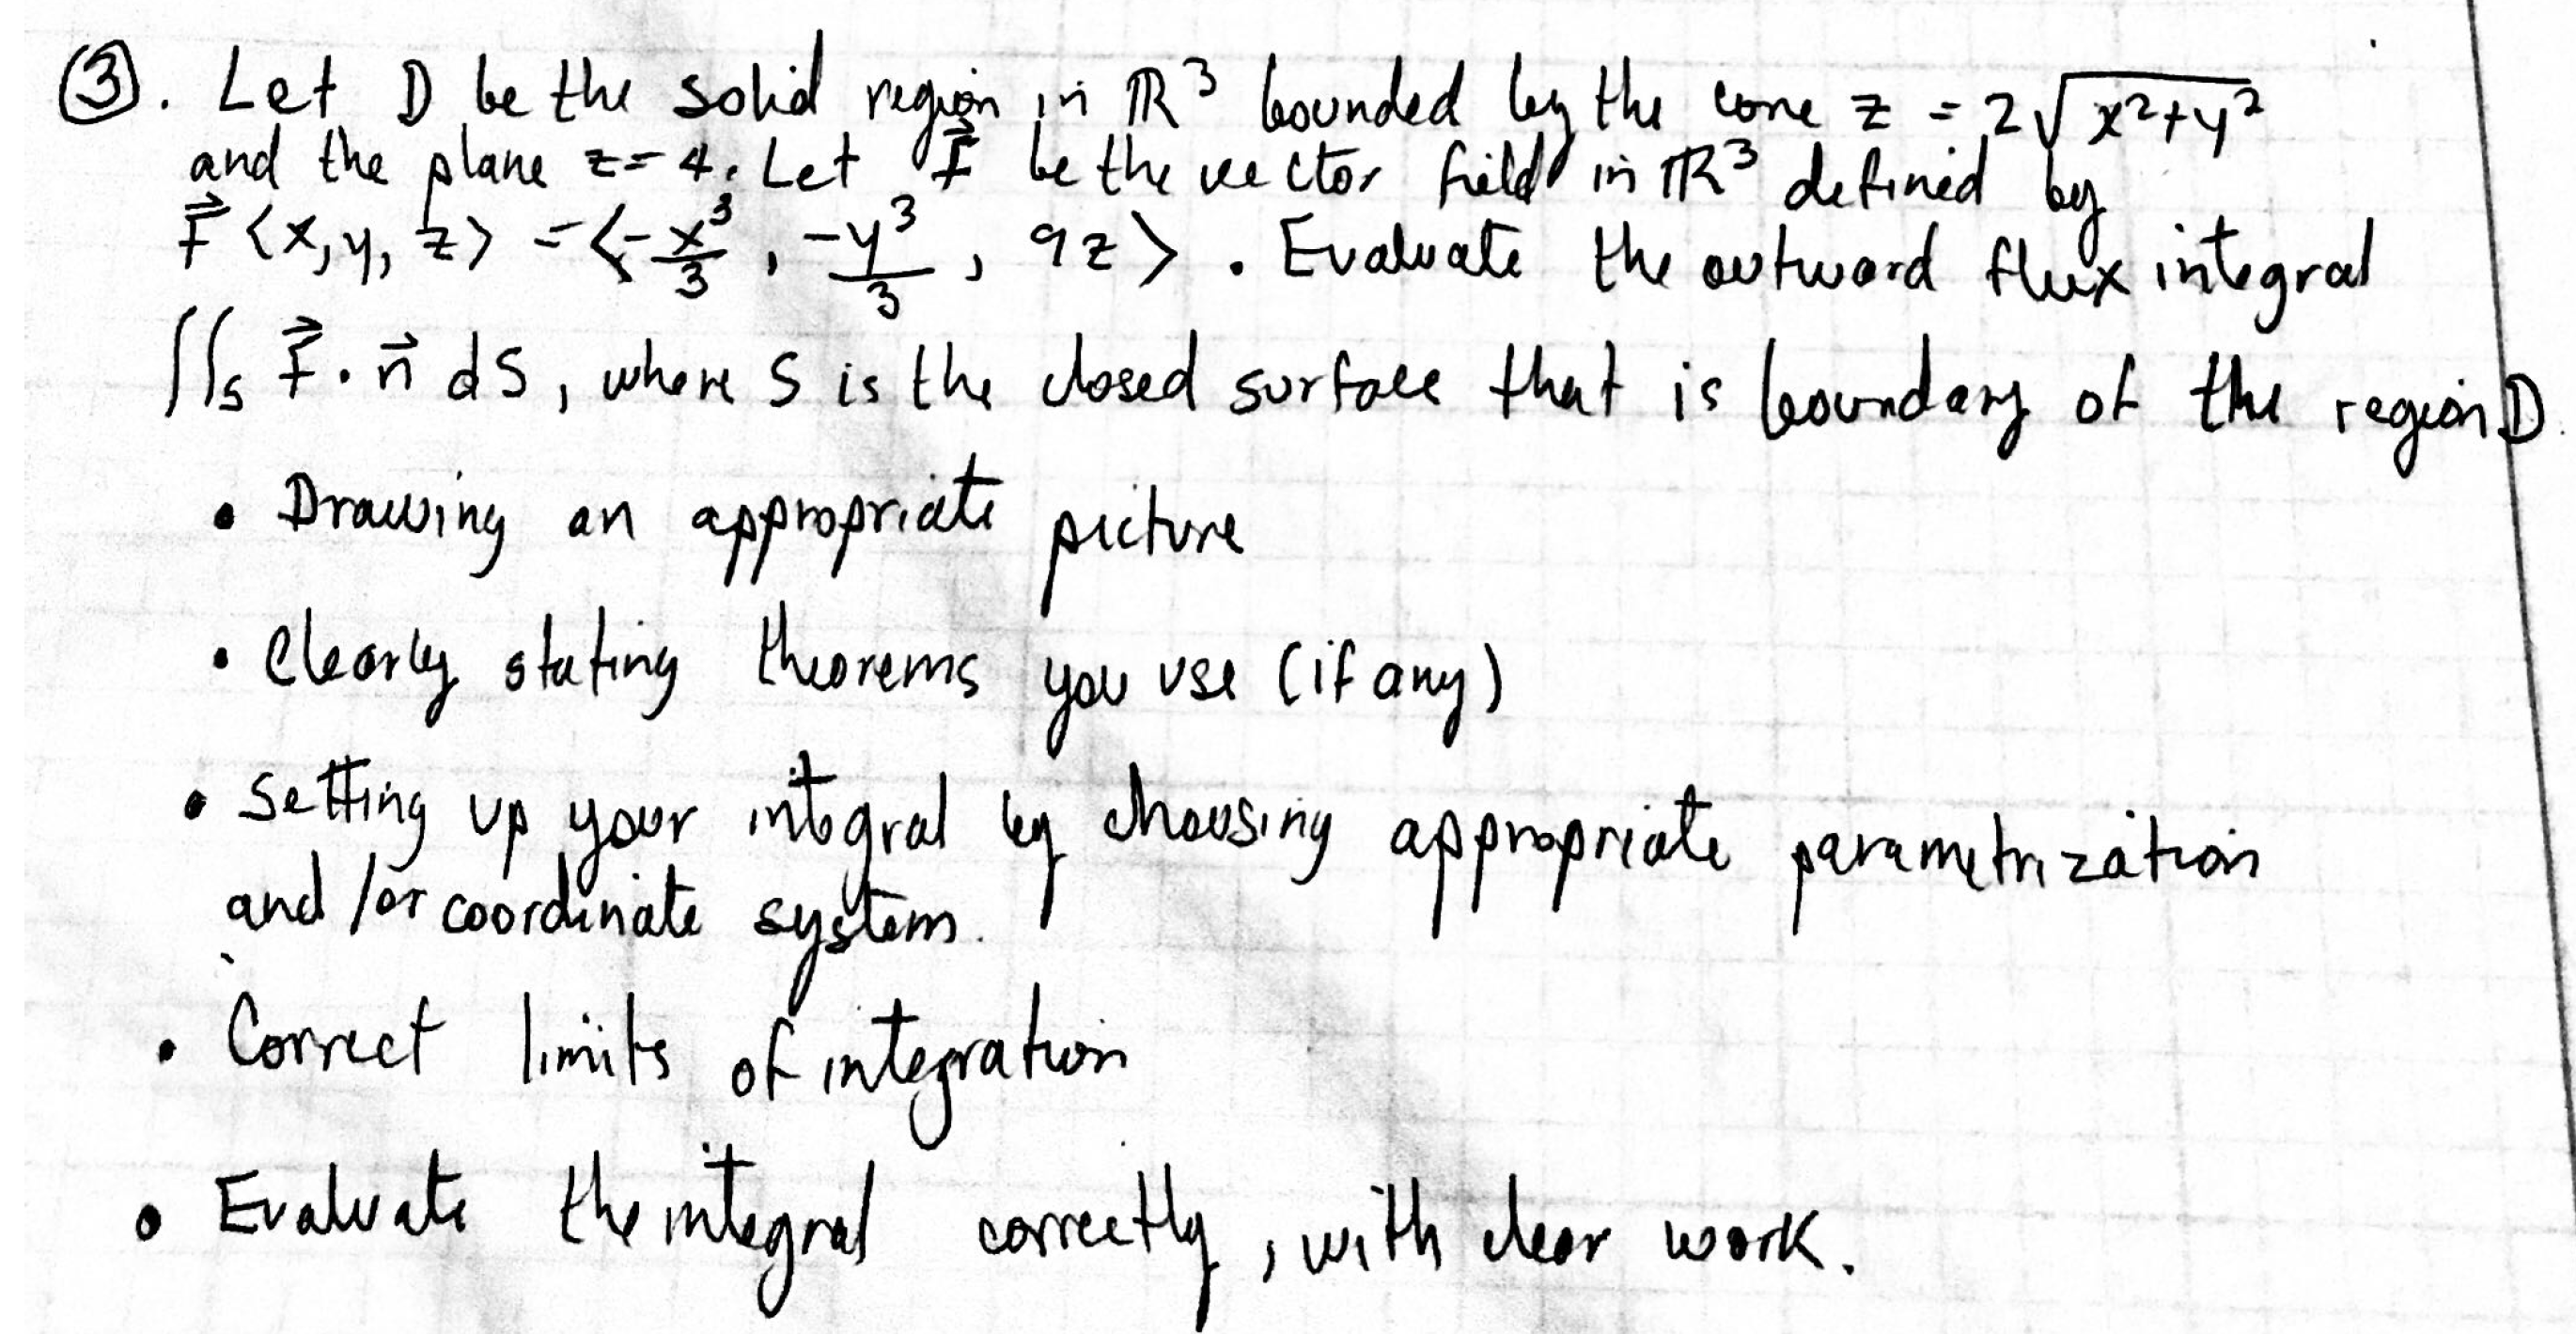 ③. Let D be the solid region in ℝ³ bounded by the cone z = 2√(x²+y²)
and the plane z=4. Let F⃗ be the vector field in ℝ³ defined by
F⃗ ⟨x,y,z⟩ = ⟨-x³/3, -y³/3, 9z⟩. Evaluate the outward flux integral
∬ₛ F⃗·n⃗ dS, where S is the closed surface that is boundary of the region D.
• Drawing an appropriate picture
• Clearly stating theorems you use (if any)
• Setting up your integral by choosing appropriate parametrization
and/or coordinate system.
• Correct limits of integration
• Evaluate the integral correctly, with clear work.